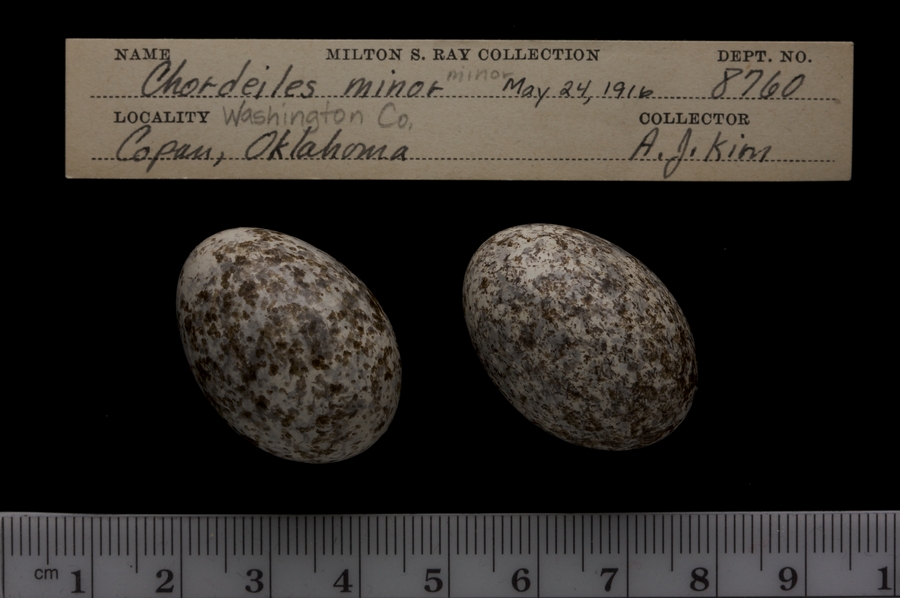 NAME MILTON S. RAY COLLECTION DEPT. NO.
Chordeiles minor minor May 24, 1916 8760
LOCALITY Washington Co. COLLECTOR
Copan, Oklahoma A. J. Kirn
cm 1 2 3 4 5 6 7 8 9 1